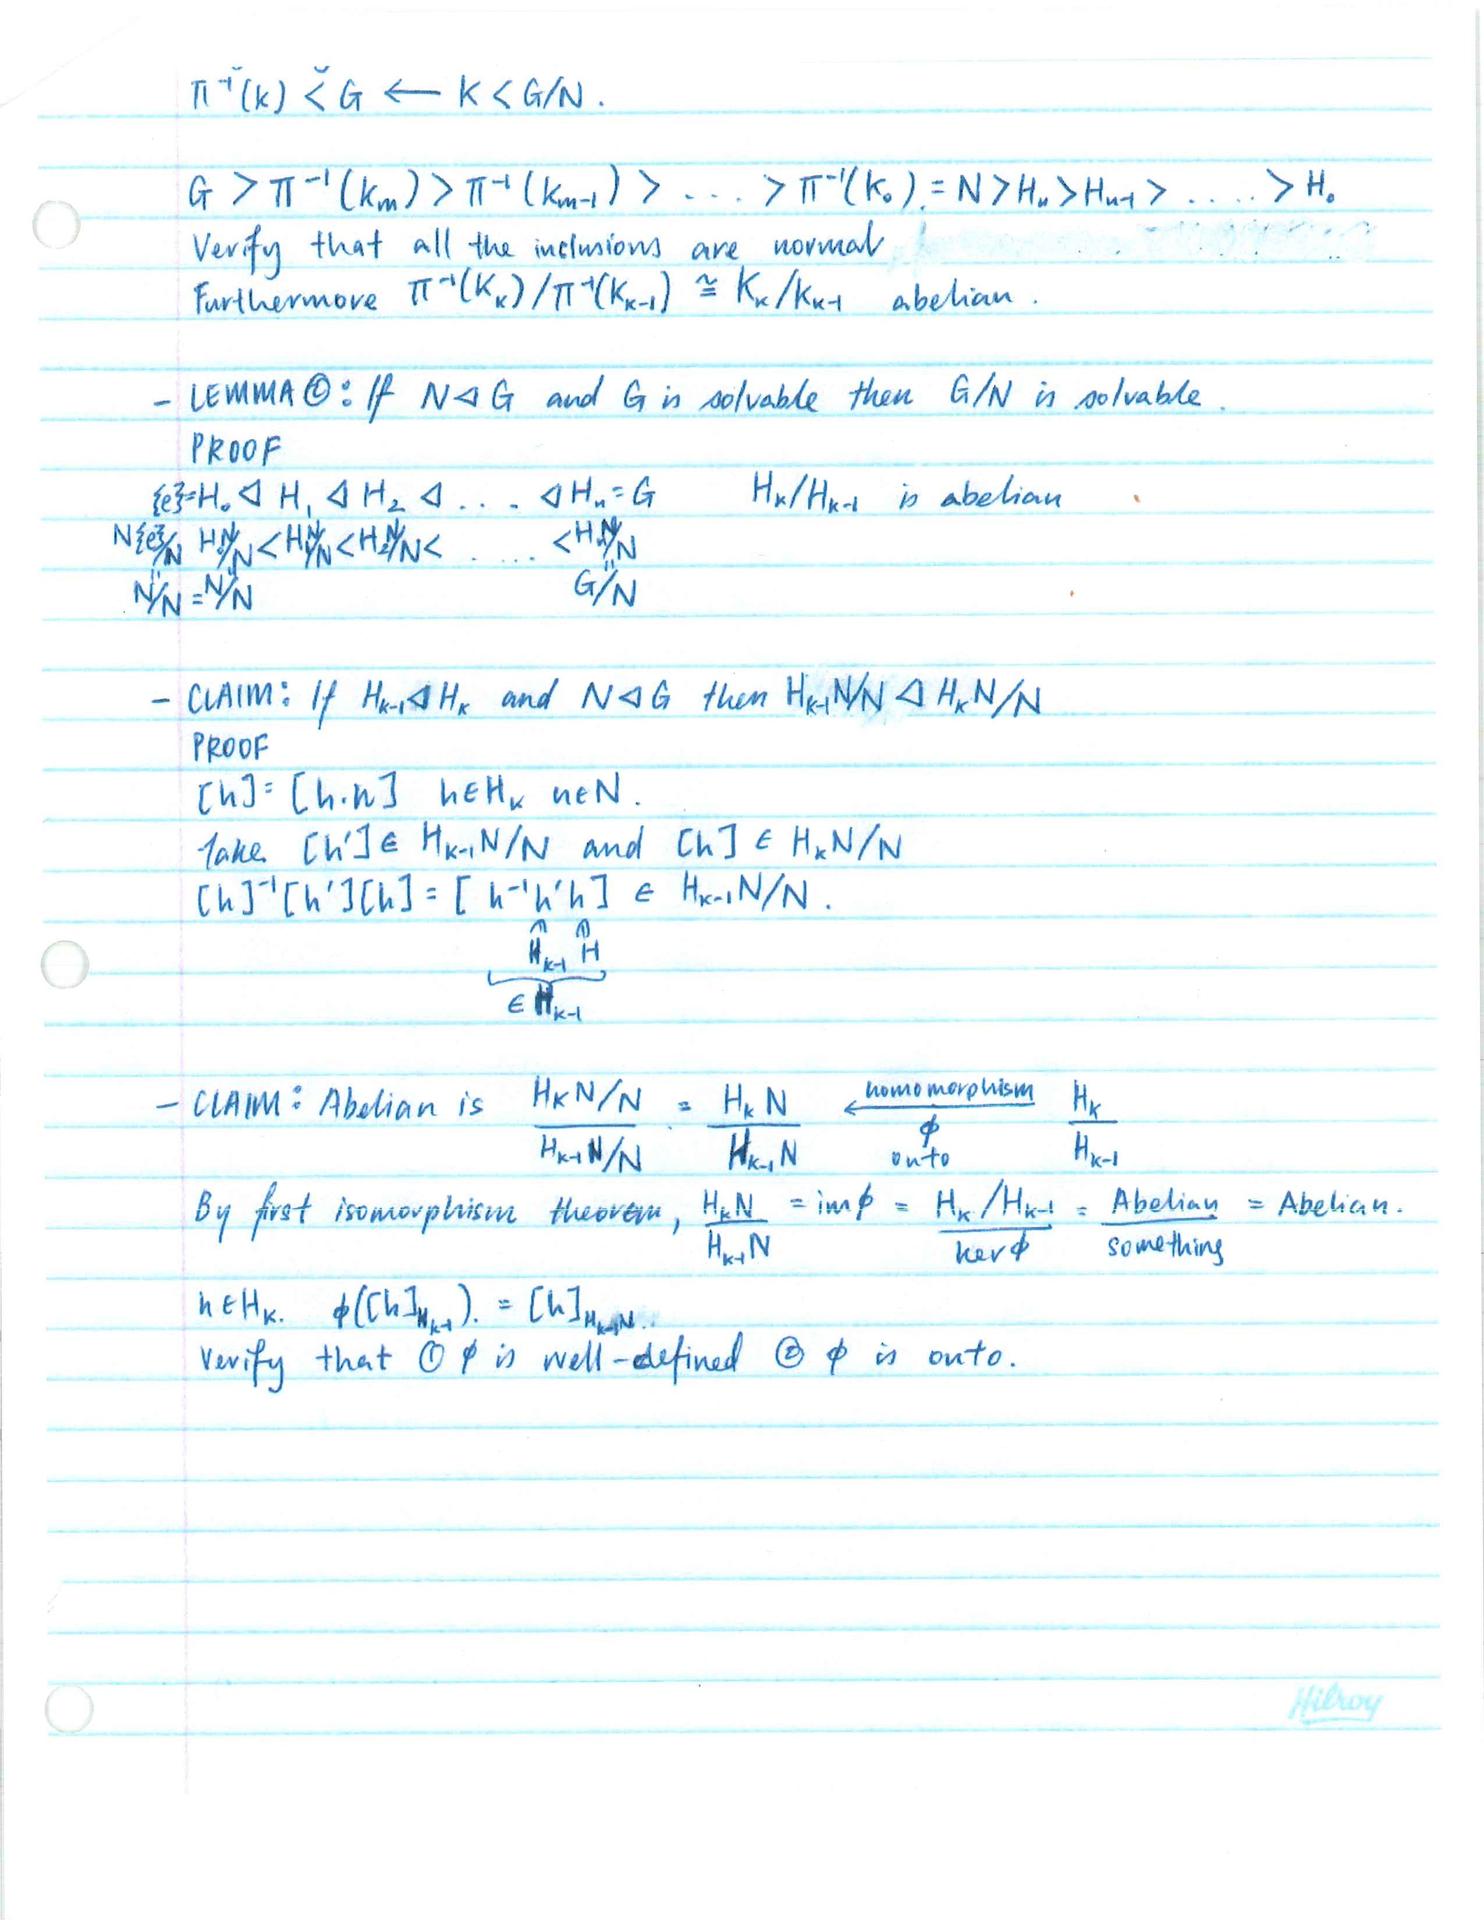 π⁻¹(K) < G ← K < G/N.
G > π⁻¹(Km) > π⁻¹(Km-1) > .... > π⁻¹(K₀) = N > Hn > Hn-1 > ..... > H₀
Verify that all the inclusions are normal
Furthermore π⁻¹(Kk)/π⁻¹(Kk-1) ≅ Kk/Kk-1 abelian.
- LEMMA ②: If N ⊲ G and G is solvable then G/N is solvable.
PROOF
{e}=H₀ ⊲ H₁ ⊲ H₂ ⊲ .... ⊲ Hn = G Hk/Hk-1 is abelian
N{e}/N H₀N/N < H₁N/N < H₂N/N < .... < HnN/N
N/N = N/N G/N
- CLAIM: If Hk-1 ⊲ Hk and N ⊲ G then Hk-1N/N ⊲ HkN/N
PROOF
[h] = [h·n] h∈Hk n∈N.
Take [h'] ∈ Hk-1N/N and [h] ∈ HkN/N
[h]⁻¹[h'][h] = [h⁻¹h'h] ∈ Hk-1N/N.
Hk-1 H
∈ Hk-1
- CLAIM: Abelian is (HkN/N)/(Hk-1N/N) = HkN/Hk-1N ← homomorphism φ onto Hk/Hk-1
By first isomorphism theorem, HkN/Hk-1N = imφ = (Hk/Hk-1)/kerφ = Abelian/something = Abelian.
h∈Hk. φ([h]Hk-1). = [h]Hk-1N..
Verify that ① φ is well-defined ② φ is onto.
Hilroy